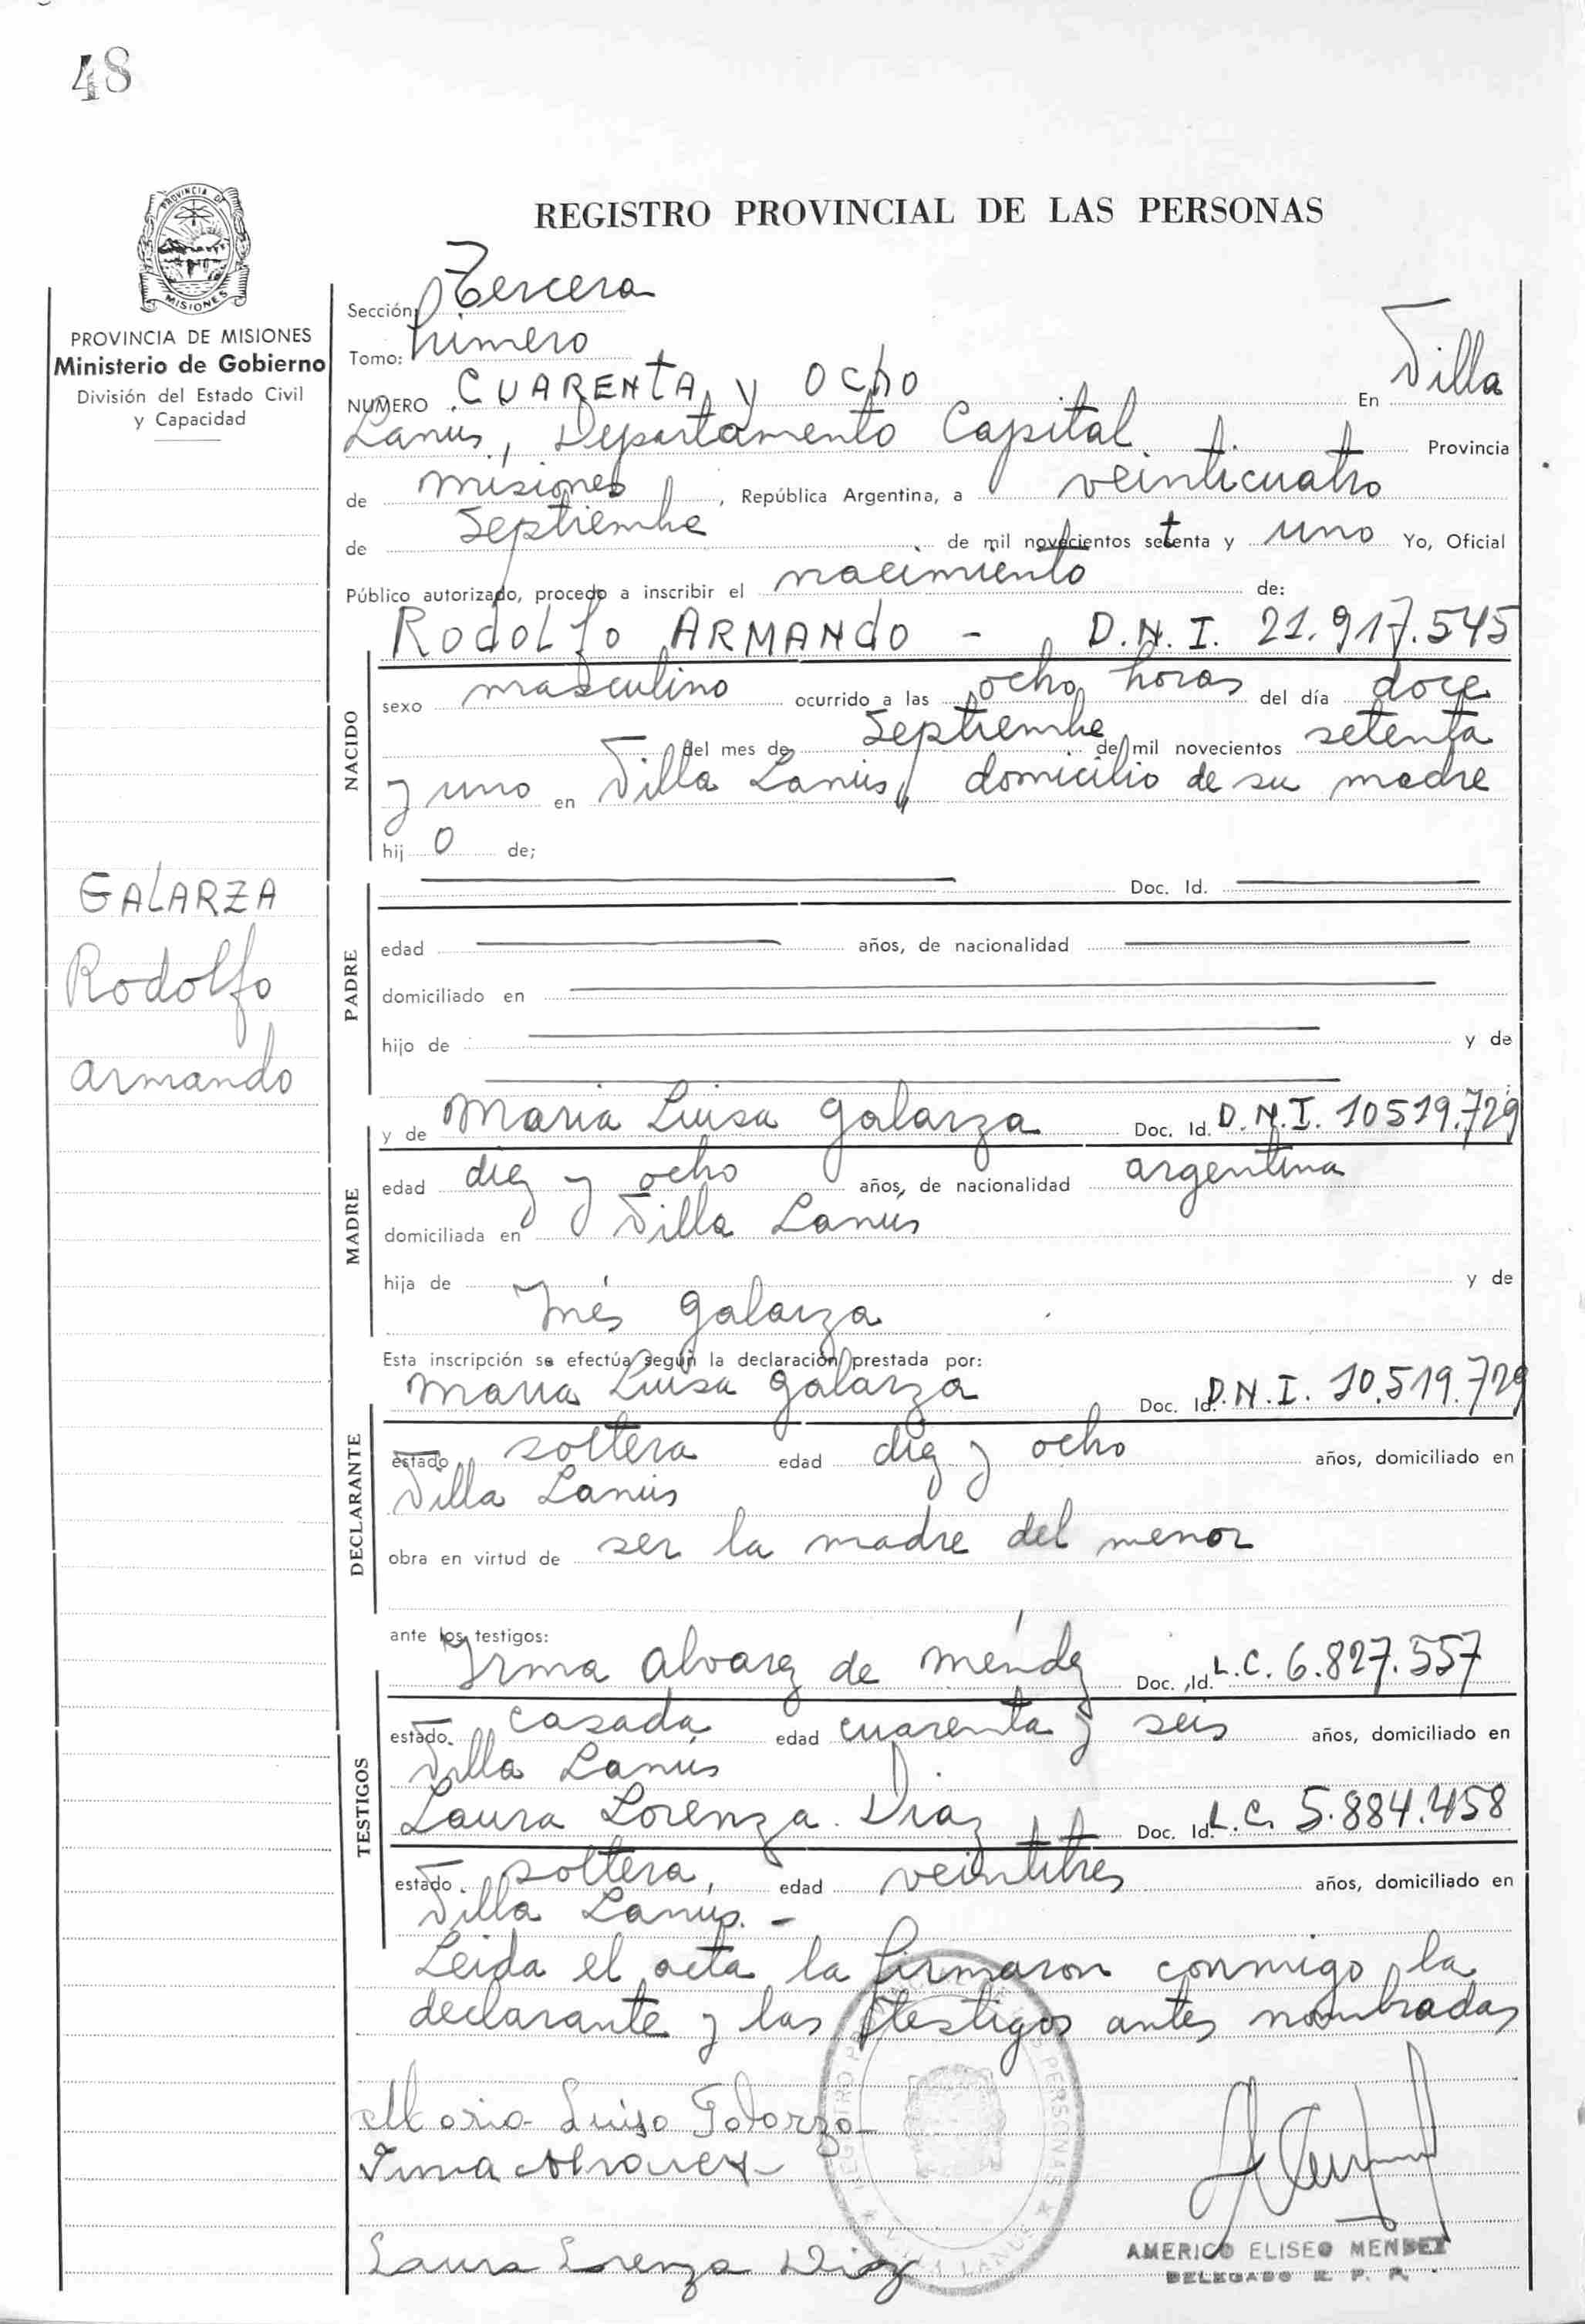 48
PROVINCIA DE
MISIONES
REGISTRO PROVINCIAL DE LAS PERSONAS
PROVINCIA DE MISIONES
Ministerio de Gobierno
División del Estado Civil
y Capacidad
GALARZA
Rodolfo
Armando
Sección: Tercera
Tomo: Primero
NUMERO CUARENTA y OchO En Villa
Lanus, Departamento Capital Provincia
de Misiones, República Argentina, a veinticuatro
de Septiembre de mil novecientos setenta y uno Yo, Oficial
Público autorizado, procedo a inscribir el nacimiento de:
NACIDO
RodoLfo ARMANdO - D.N.I. 21.917.545
sexo masculino ocurrido a las ocho horas del día doce
del mes de Septiembre de mil novecientos setenta
y uno en Villa Lanús, domicilio de su madre
hij o de;
PADRE
Doc. Id.
edad años, de nacionalidad
domiciliado en
hijo de y de
MADRE
y de Maria Luisa Galarza Doc. Id. D.N.I. 10519.729
edad diez y ocho años, de nacionalidad argentina
domiciliada en Villa Lanús
hija de y de
Inés Galarza
Esta inscripción se efectúa según la declaración prestada por:
DECLARANTE
Maria Luisa Galarza Doc. Id. D.N.I. 10.519.729
estado soltera edad diez y ocho años, domiciliado en
Villa Lanús
obra en virtud de ser la madre del menor
ante los testigos:
TESTIGOS
Irma Alvarez de Méndez Doc. Id. L.C. 6.827.557
estado casada edad cuarenta y seis años, domiciliado en
Villa Lanús
Laura Lorenza Diaz Doc. Id. L.C. 5.884.458
estado soltera, edad veintitres años, domiciliado en
Villa Lanús. -
Leida el acta la firmaron conmigo la
declarante y las testigos antes nombradas
Maria Luisa Galarza
Irma Alvarez
Laura Lorenza Diaz
AMERICO ELISEO MENDEZ
DELEGADO R. P. P.